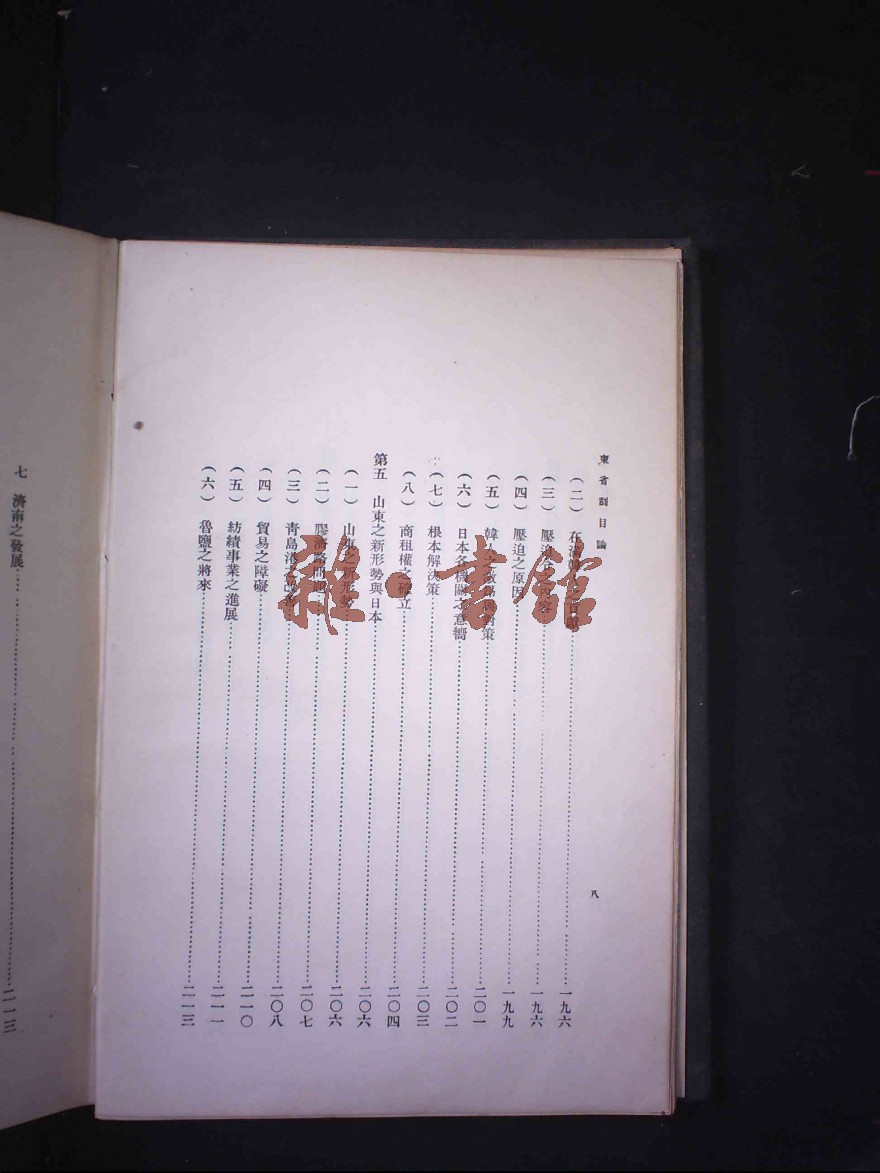 東省刮目論
八
(二) 在滿韓人之⋯⋯一九六
(三) 壓迫之內容⋯⋯一九六
(四) 壓迫之原因⋯⋯一九九
(五) 韓人 對策⋯⋯二〇一
(六) 日本各機關之意嚮⋯⋯二〇二
(七) 根本解決策⋯⋯二〇三
(八) 商租權之確立⋯⋯二〇四
第五 山東之新形勢與日本⋯⋯二〇六
(一) 山東之新形勢⋯⋯二〇六
(二) 膠濟路問題⋯⋯二〇七
(三) 青島港之改⋯⋯二〇八
(四) 貿易之障礙⋯⋯二一〇
(五) 紡績事業之進展⋯⋯二一一
(六) 魯鹽之將來⋯⋯二一三
七 濟南之發展⋯⋯二一三
雜·書館